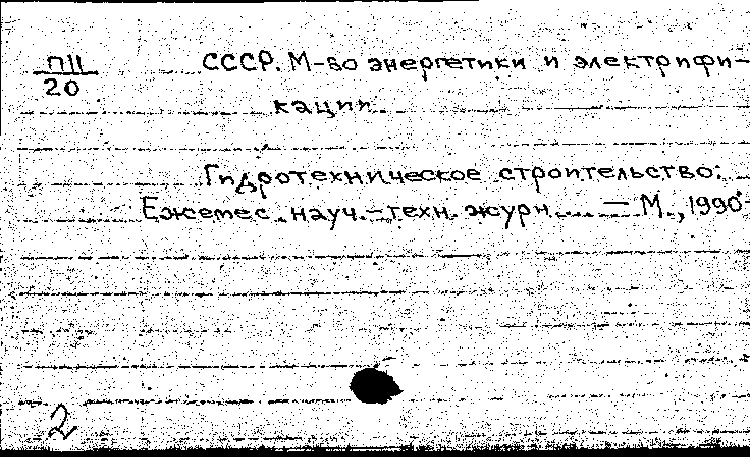 П11
20
СССР. М-во энергетики и электрифи-
кации.
Гидротехническое строительство:
Ежемес. науч.-техн. журн. ... — М., 1990
2